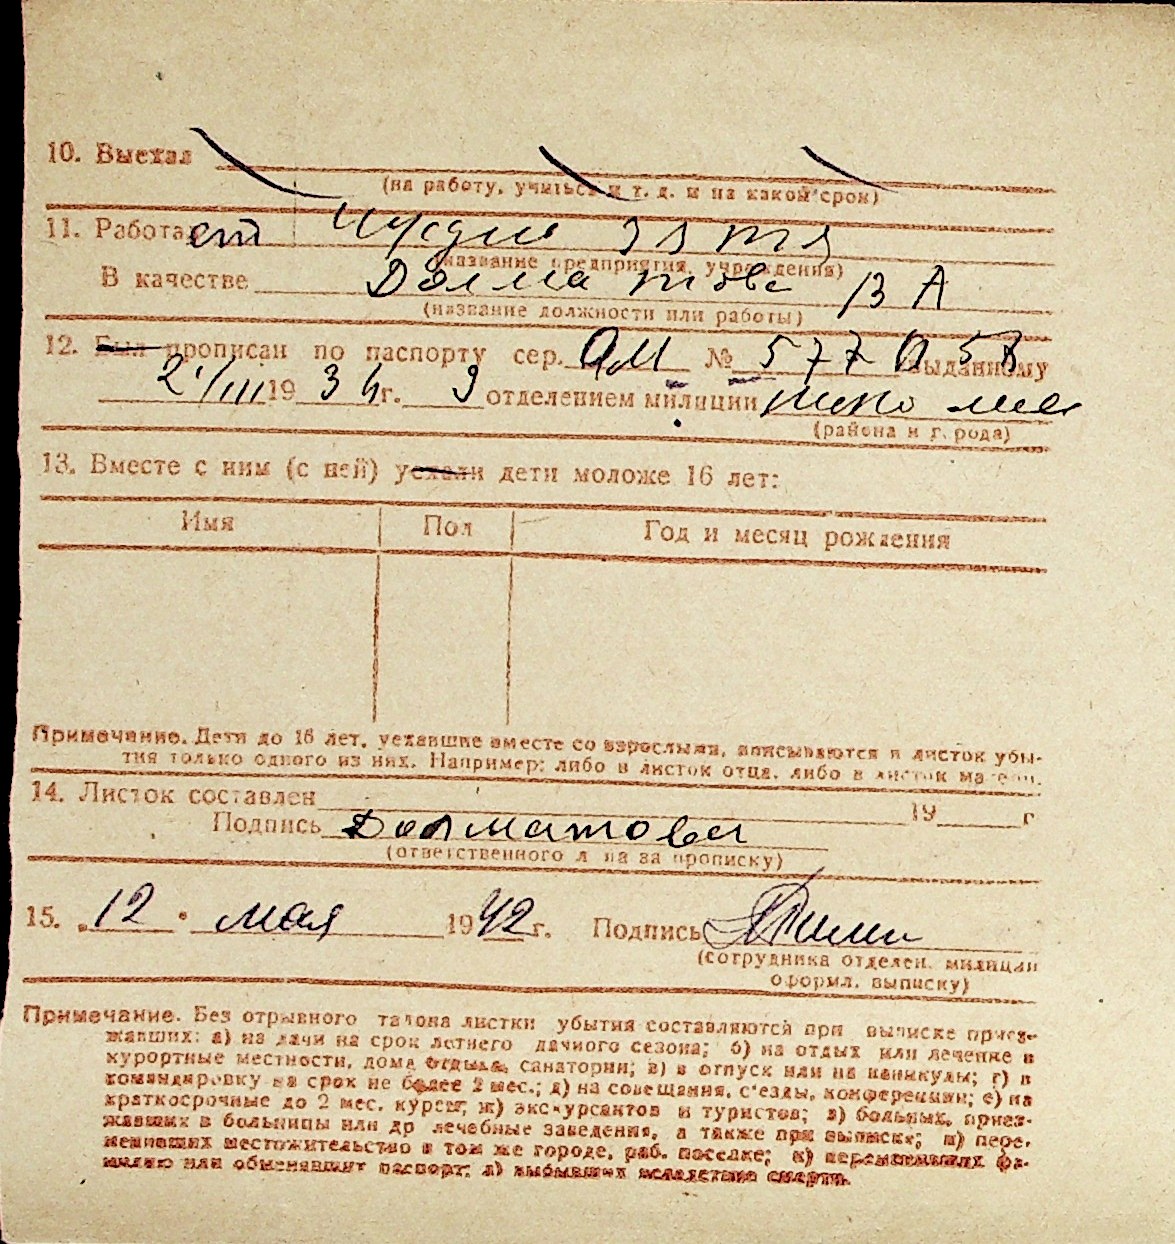 10. Выехал
(на работу, учиться и т. д. и на какой срок)
11. Работает
(название предприятия, учреждения)
В качестве Долматова В А
(название должности или работы)
12. Был прописан по паспорту сер. ОМ № выданному
19 г. 9 отделением милиции
(района и города)
13. Вместе с ним (с ней) уехали дети моложе 16 лет:
Имя Пол Год и месяц рождения
Примечание. Дети до 16 лет, уехавшие вместе со взрослыми, вписываются в листок убы-
тия только одного из них. Например: либо в листок отца, либо в листок матери.
14. Листок составлен 19 г
Подпись Долматова
(ответственного л на за прописку)
15. „12" мая 1942 г. Подпись
(сотрудника отделен. милиции
оформл. выписку)
Примечание. Без отрывного талона листки убытия составляются при выписке приез-
жавших: а) на дачи на срок летнего дачного сезона; б) на отдых или лечение в
курортные местности, дома отдыха, санатории; в) в отпуск или на каникулы; г) в
командировку на срок не более 2 мес.; д) на совещания, с'езды, конференции; е) на
краткосрочные до 2 мес. курсы; ж) экскурсантов и туристов; з) больных, приез-
жавших в больницы или др лечебные заведения, а также при выписке; и) пере-
менивших местожительство в том же городе, раб. поселке; к) переменивших фа-
милию или обменявших паспорт; л) выбывших вследствие смерти.